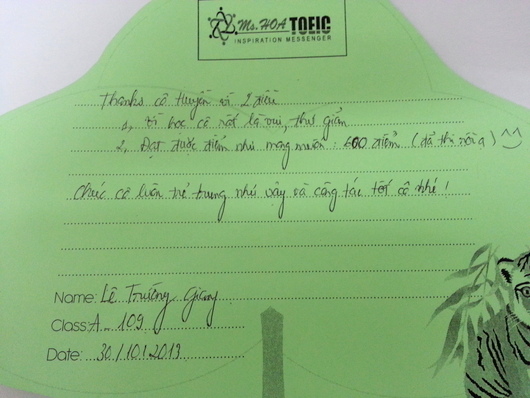 Ms. HOA TOEIC
INSPIRATION MESSENGER
Thanks cô Huyền vì 2 điều
1, Đi học cô rất là vui, thư giãn
2, Đạt được điểm như mong muốn : 600 điểm (đã thi rồi ạ)
Chúc cô luôn trẻ trung như vậy và công tác tốt cô nhé !
Name: Lê Trường Giang
Class: A - 109
Date: 30/10/2013